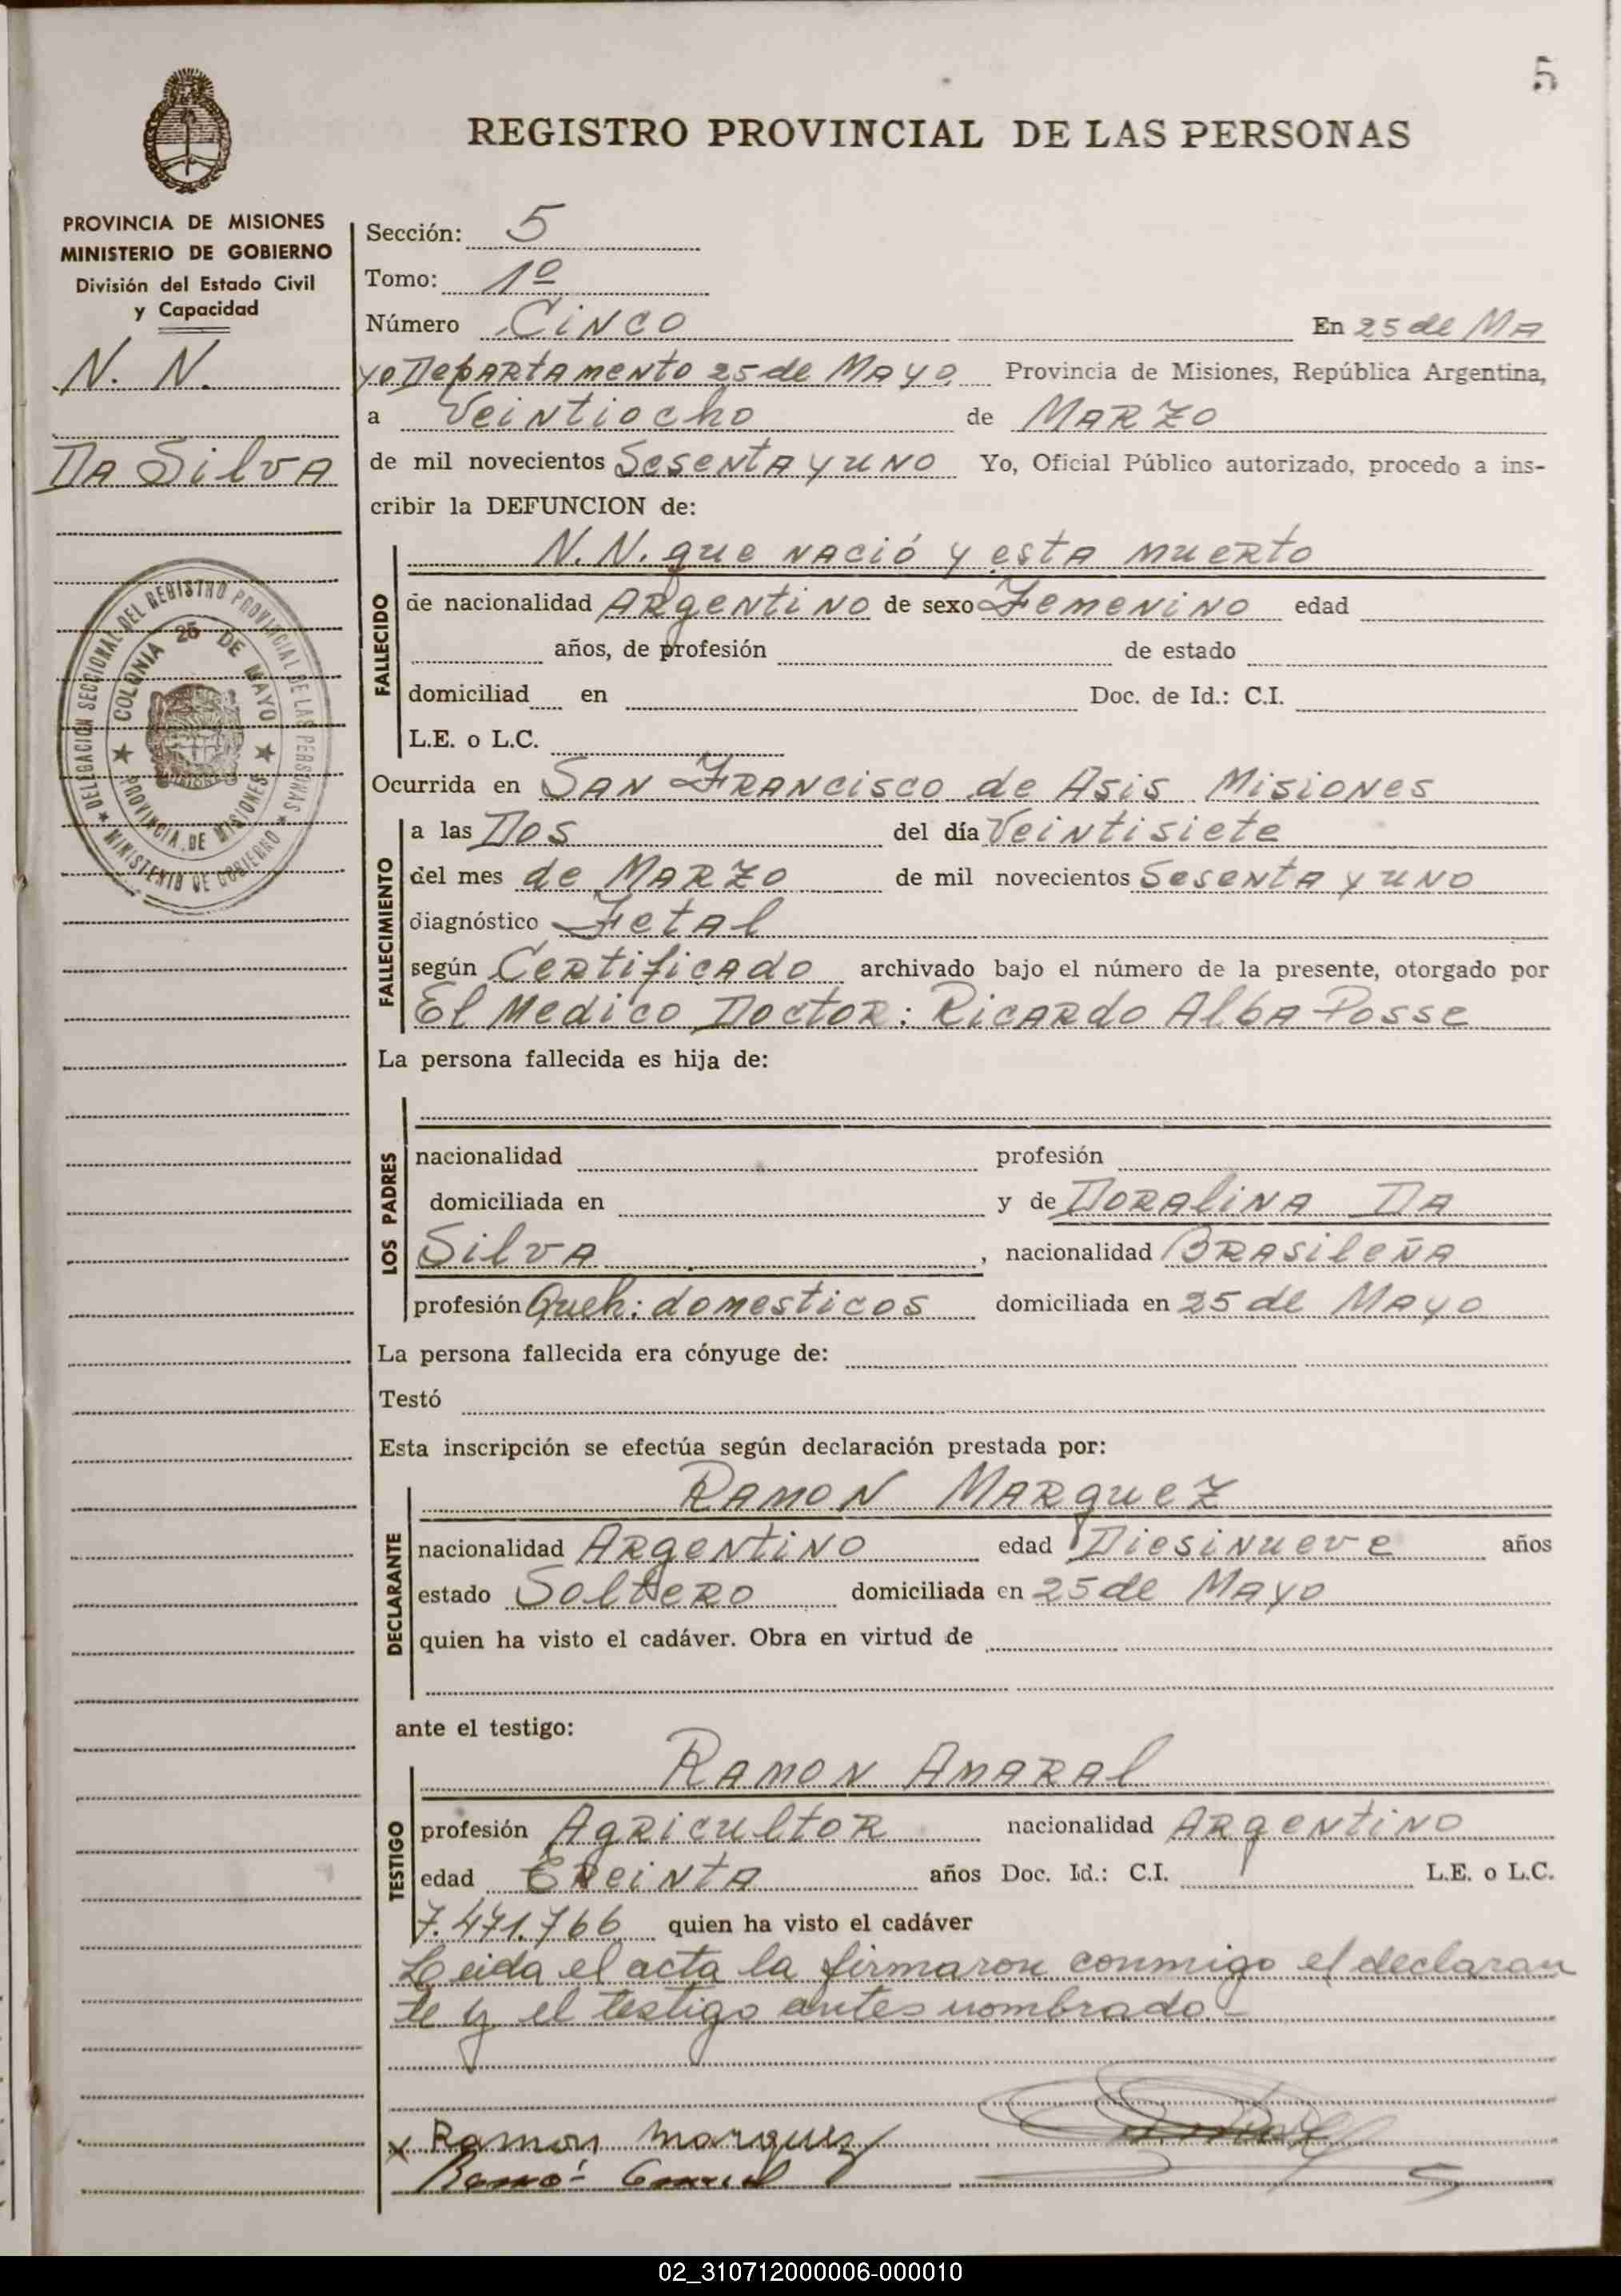 5
REGISTRO PROVINCIAL DE LAS PERSONAS
PROVINCIA DE MISIONES
MINISTERIO DE GOBIERNO
División del Estado Civil
y Capacidad
N. N.
Da Silva
DELEGACIÓN SECCIONAL DEL REGISTRO PROVINCIAL DE LAS PERSONAS
★ MINISTERIO DE GOBIERNO ★
COLONIA 25 DE MAYO
★ PROVINCIA DE MISIONES ★
Sección: 5
Tomo: 1º
Número Cinco En 25 de Ma
yo Departamento 25 de Mayo Provincia de Misiones, República Argentina,
a Veintiocho de Marzo
de mil novecientos Sesenta y uno Yo, Oficial Público autorizado, procedo a ins-
cribir la DEFUNCION de:
N.N. que nació y esta muerto
FALLECIDO
de nacionalidad Argentino de sexo Femenino edad
años, de profesión de estado
domiciliad en Doc. de Id.: C.I.
L.E. o L.C.
Ocurrida en San Francisco de Asis Misiones
FALLECIMIENTO
a las Dos del día Veintisiete
del mes de Marzo de mil novecientos Sesenta y uno
diagnóstico Fetal
según Certificado archivado bajo el número de la presente, otorgado por
El Medico Doctor: Ricardo Alba Posse
La persona fallecida es hija de:
LOS PADRES
nacionalidad profesión
domiciliada en y de Doralina Da
Silva, nacionalidad Brasileña
profesión Queh: domesticos domiciliada en 25 de Mayo
La persona fallecida era cónyuge de:
Testó
Esta inscripción se efectúa según declaración prestada por:
Ramon Marquez
DECLARANTE
nacionalidad Argentino edad Diesinueve años
estado Soltero domiciliada en 25 de Mayo
quien ha visto el cadáver. Obra en virtud de
ante el testigo:
Ramon Amaral
TESTIGO
profesión Agricultor nacionalidad Argentino
edad Treinta años Doc. Id.: C.I. L.E. o L.C.
7.471.766 quien ha visto el cadáver
Leida el acta la firmaron conmigo el declaran
te y el testigo antes nombrado.-
x Ramon Marquez
02_310712000006-000010